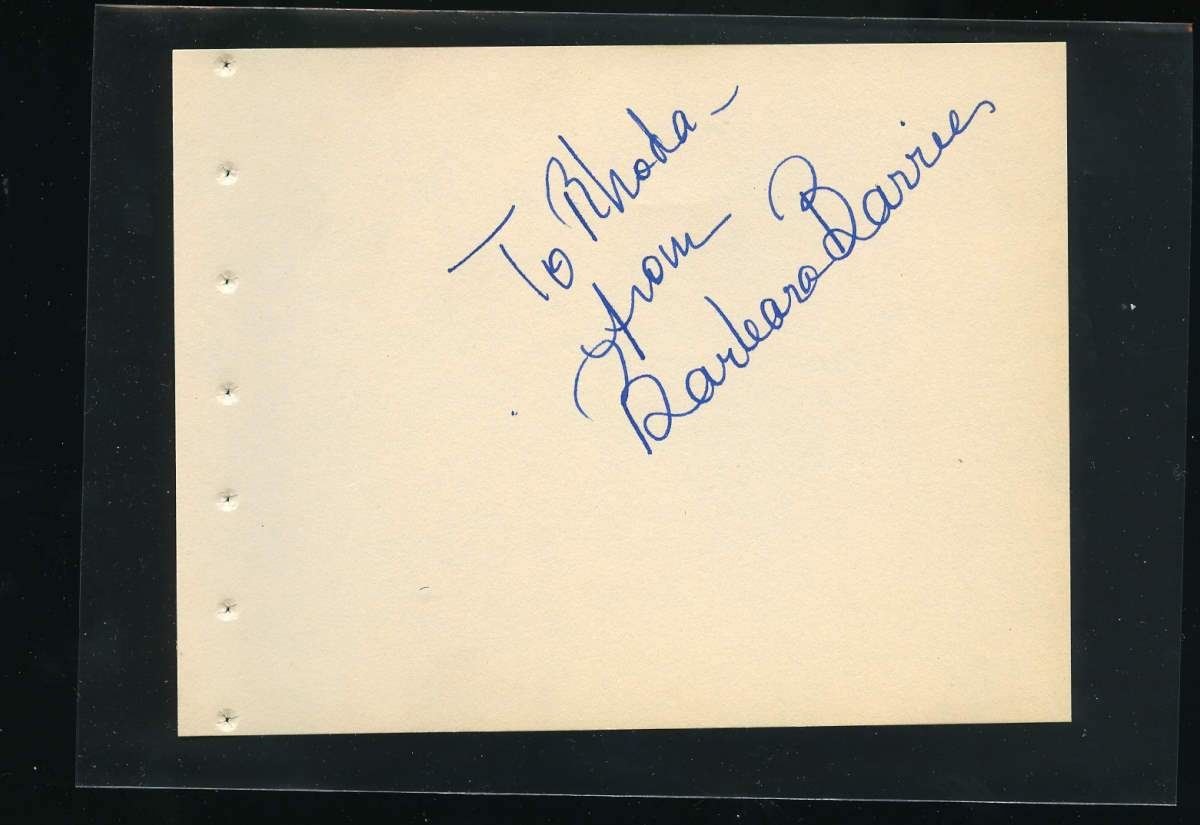 To Rhoda -
from
Barbara Barrie